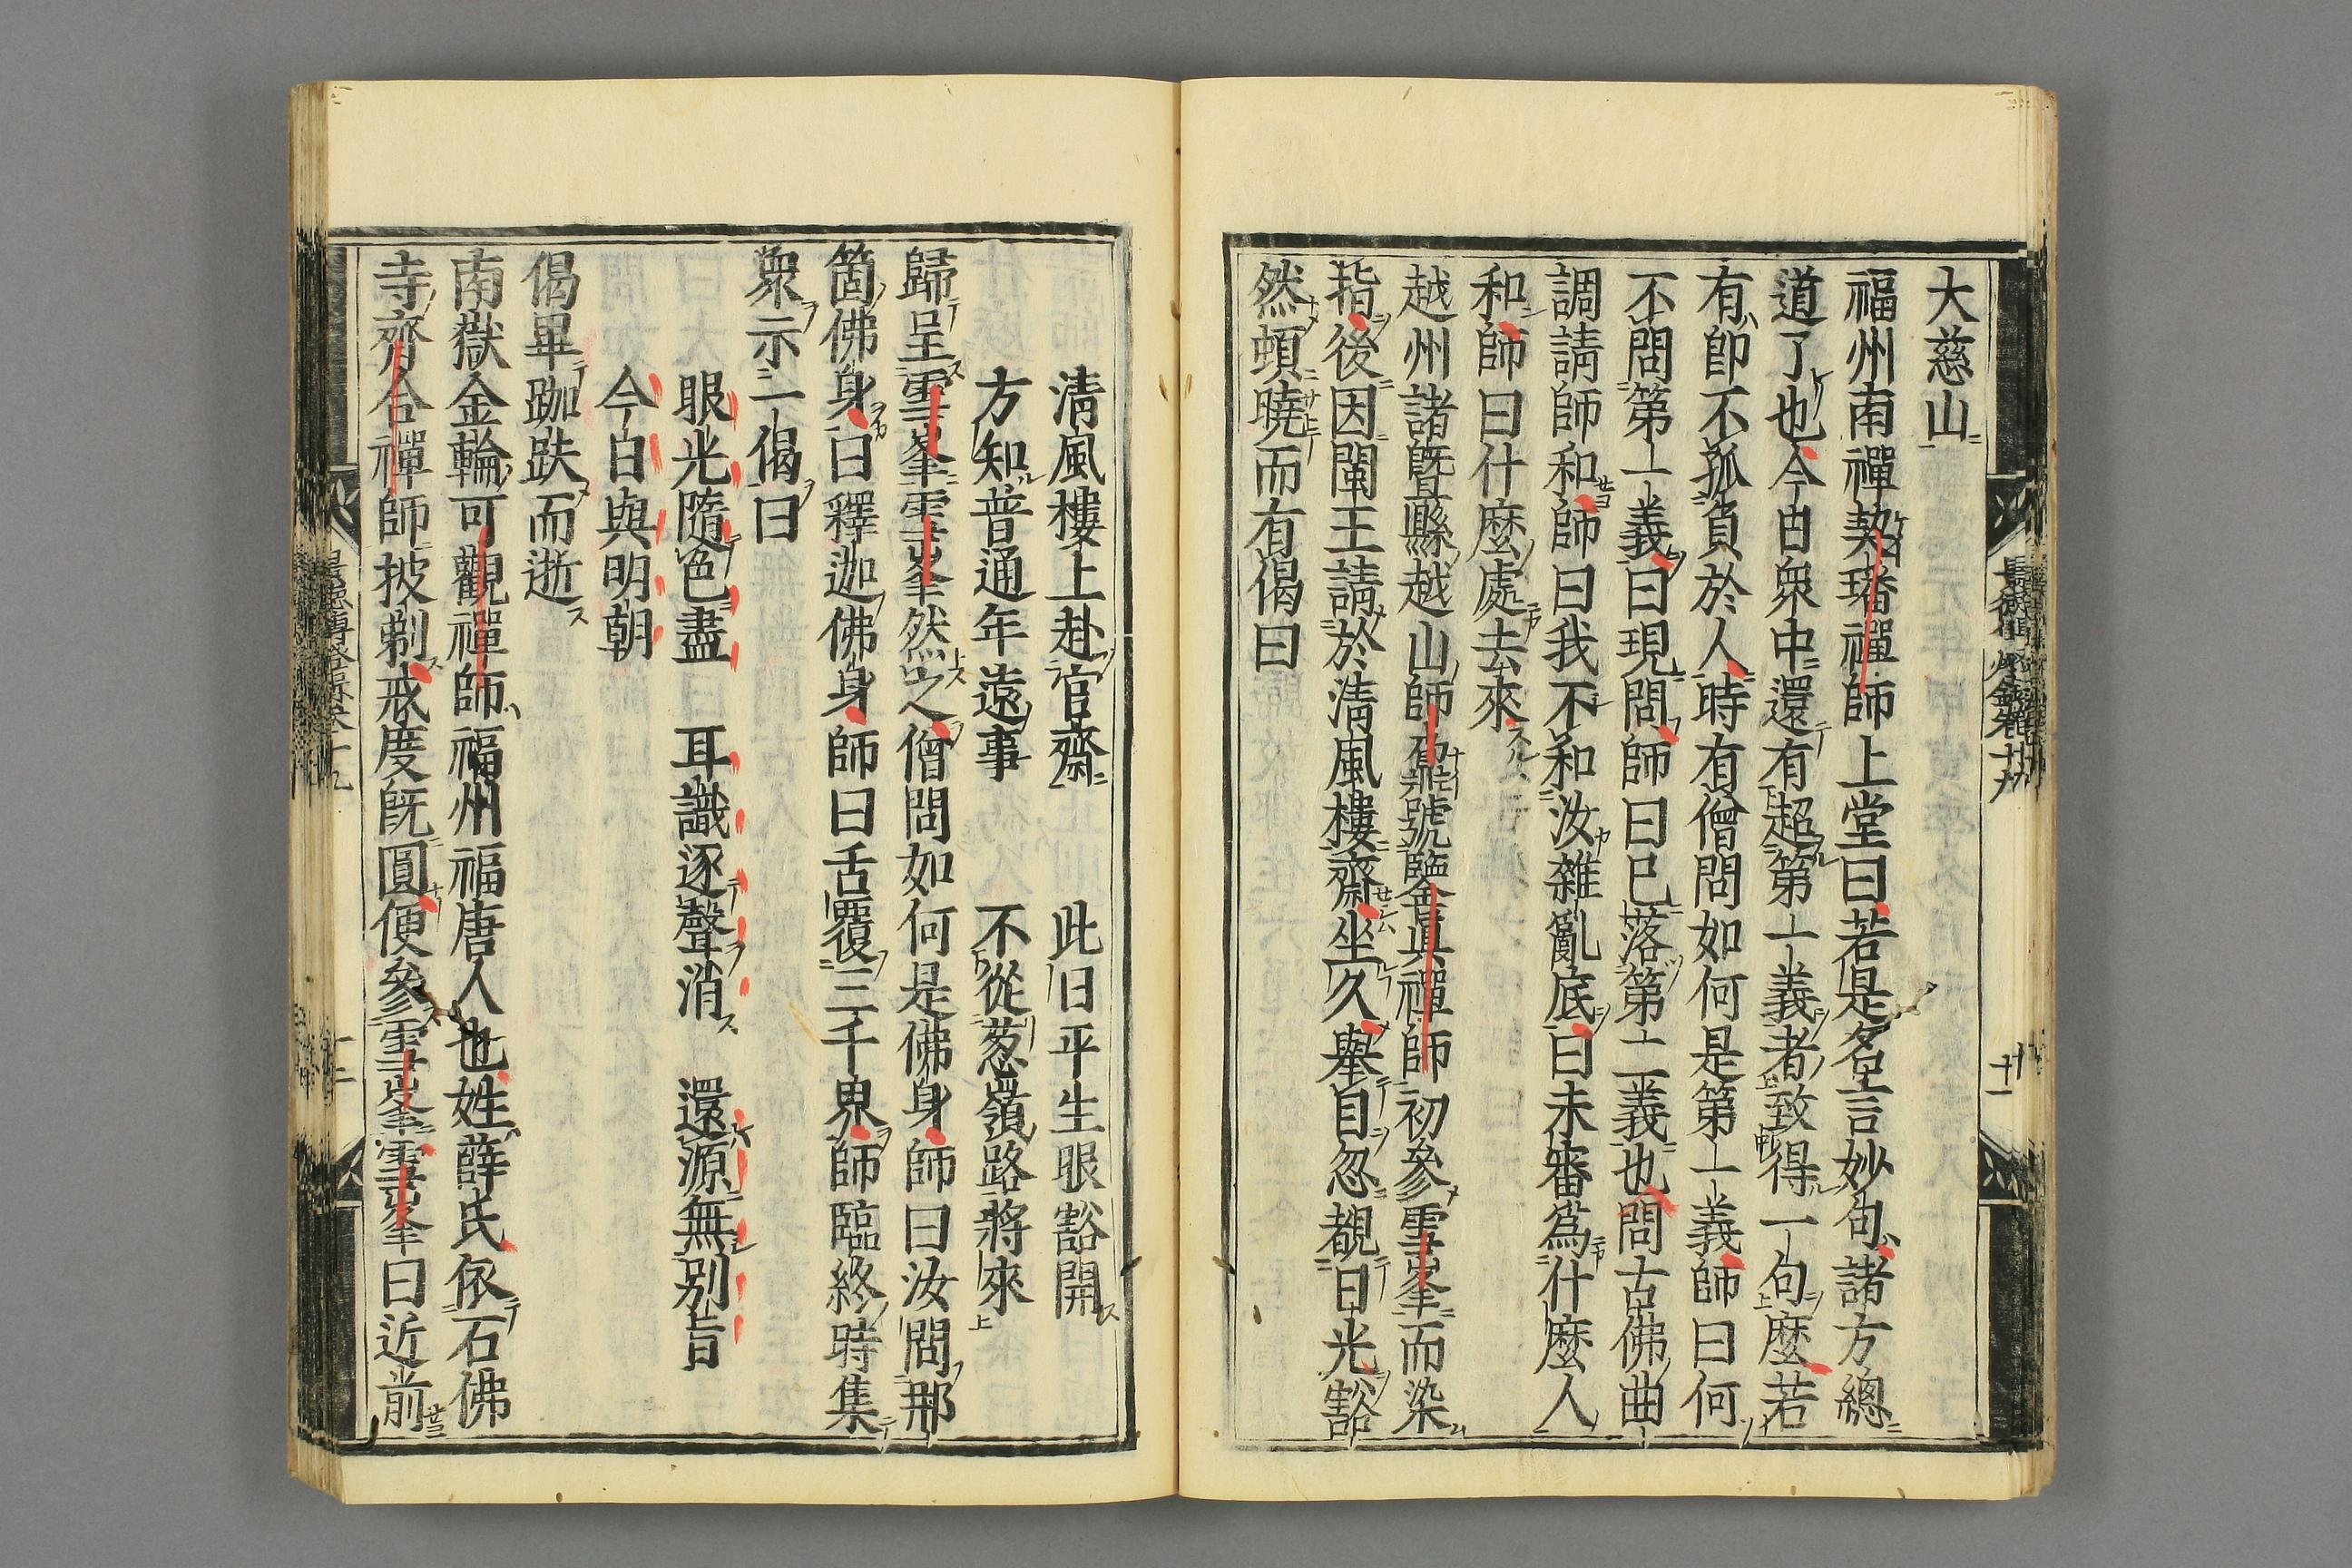 大慈山
福州南禪契璠禪師上堂曰若是名言妙句諸方總
道了也今日衆中還有超第一義者致得一句麼若
有即不孤負於人時有僧問如何是第一義師曰何
不問第一義曰現問師曰已落第二義也問古佛曲
調請師和師曰我不和汝雜亂底曰未審爲什麼人
和師曰什麼處去來
越州諸曁縣越山師鼐號鑒眞禪師初參雪峯而染
指後因閩王請於淸風樓齋坐久舉目忽覩日光豁
然頓曉而有偈曰
清風樓上赴官齋　此日平生眼豁開
方知普通年遠事　不從葱嶺路將來
歸呈雪峯雪峯然之僧問如何是佛身師曰汝問那
箇佛身曰釋迦佛身師曰舌覆三千界師臨終時集
衆示一偈曰
眼光隨色盡　耳識逐聲消　還源無別旨
今日與明朝
偈畢跏趺而逝
南嶽金輪可觀禪師福州福唐人也姓薛氏依石佛
寺齊合禪師披剃戒度旣圓便參雪峯雪峯曰近前